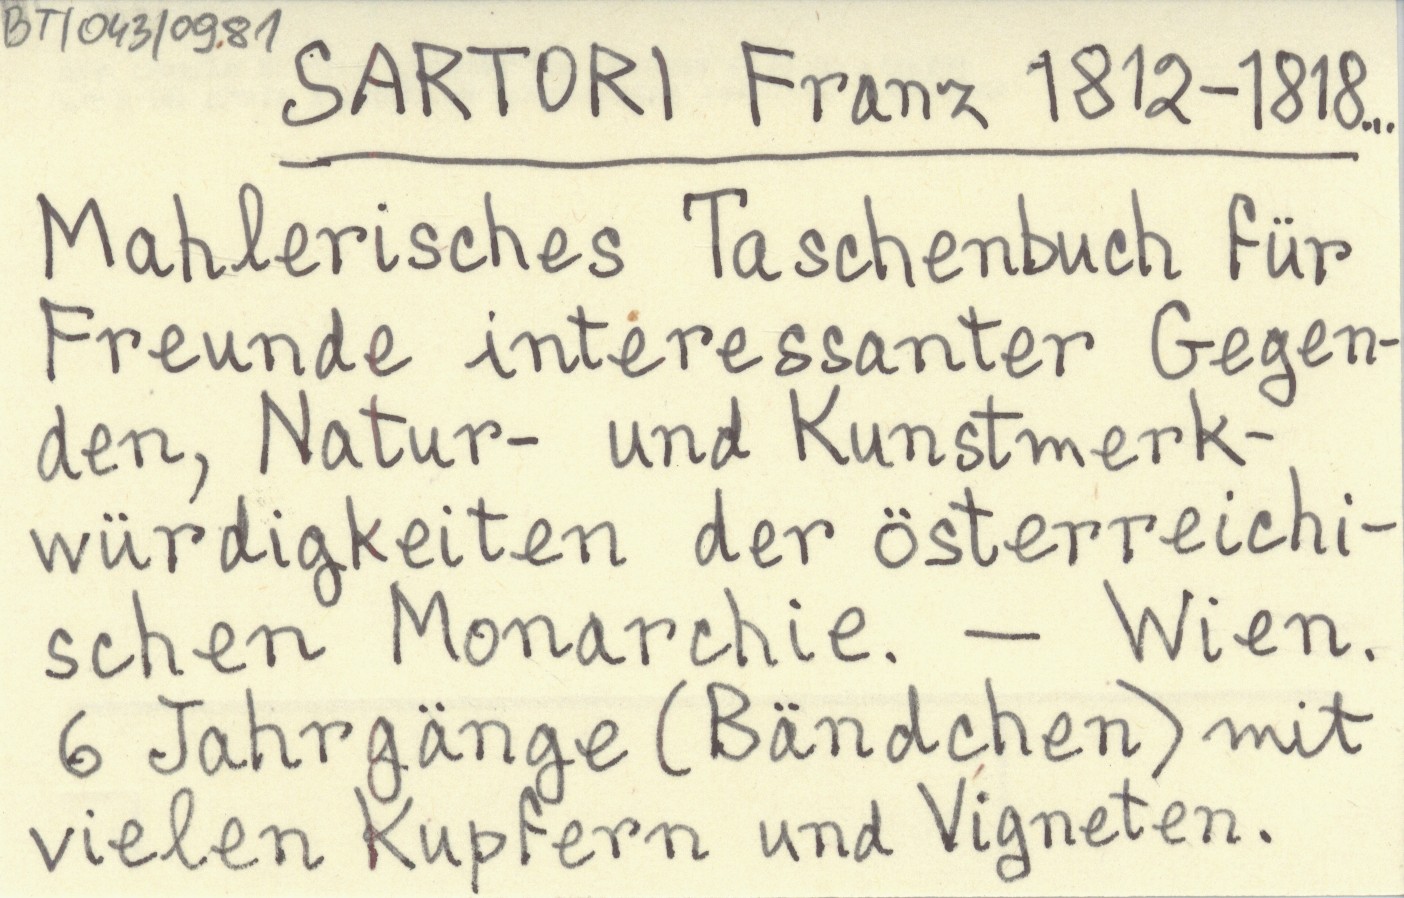 BT/043/09.81
SARTORI Franz 1812-1818...
Mahlerisches Taschenbuch für
Freunde interessanter Gegen-
den, Natur- und Kunstmerk-
würdigkeiten der österreichi-
schen Monarchie. — Wien.
6 Jahrgänge (Bändchen) mit
vielen Kupfern und Vigneten.